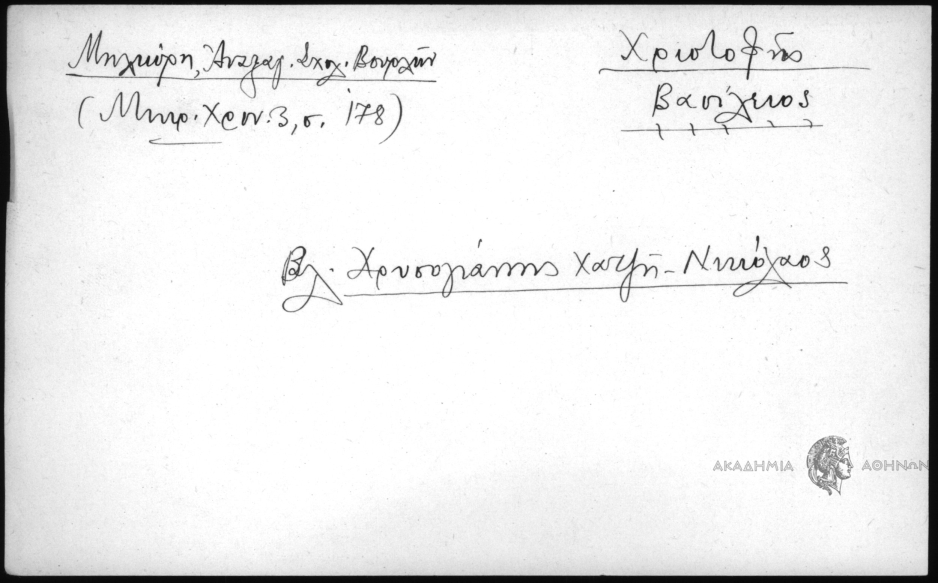 Μηλιώρη, Ἀναλαμ. Σχολ. Βουρλῶν
(Μικρ. Χρον. 3, σ. 178)
Χριστοφῆς
Βασίλειος
Βλ. Χρυσογιάννης Χατζῆ-Νικόλαος
ΑΚΑΔΗΜΙΑ ΑΘΗΝΩΝ